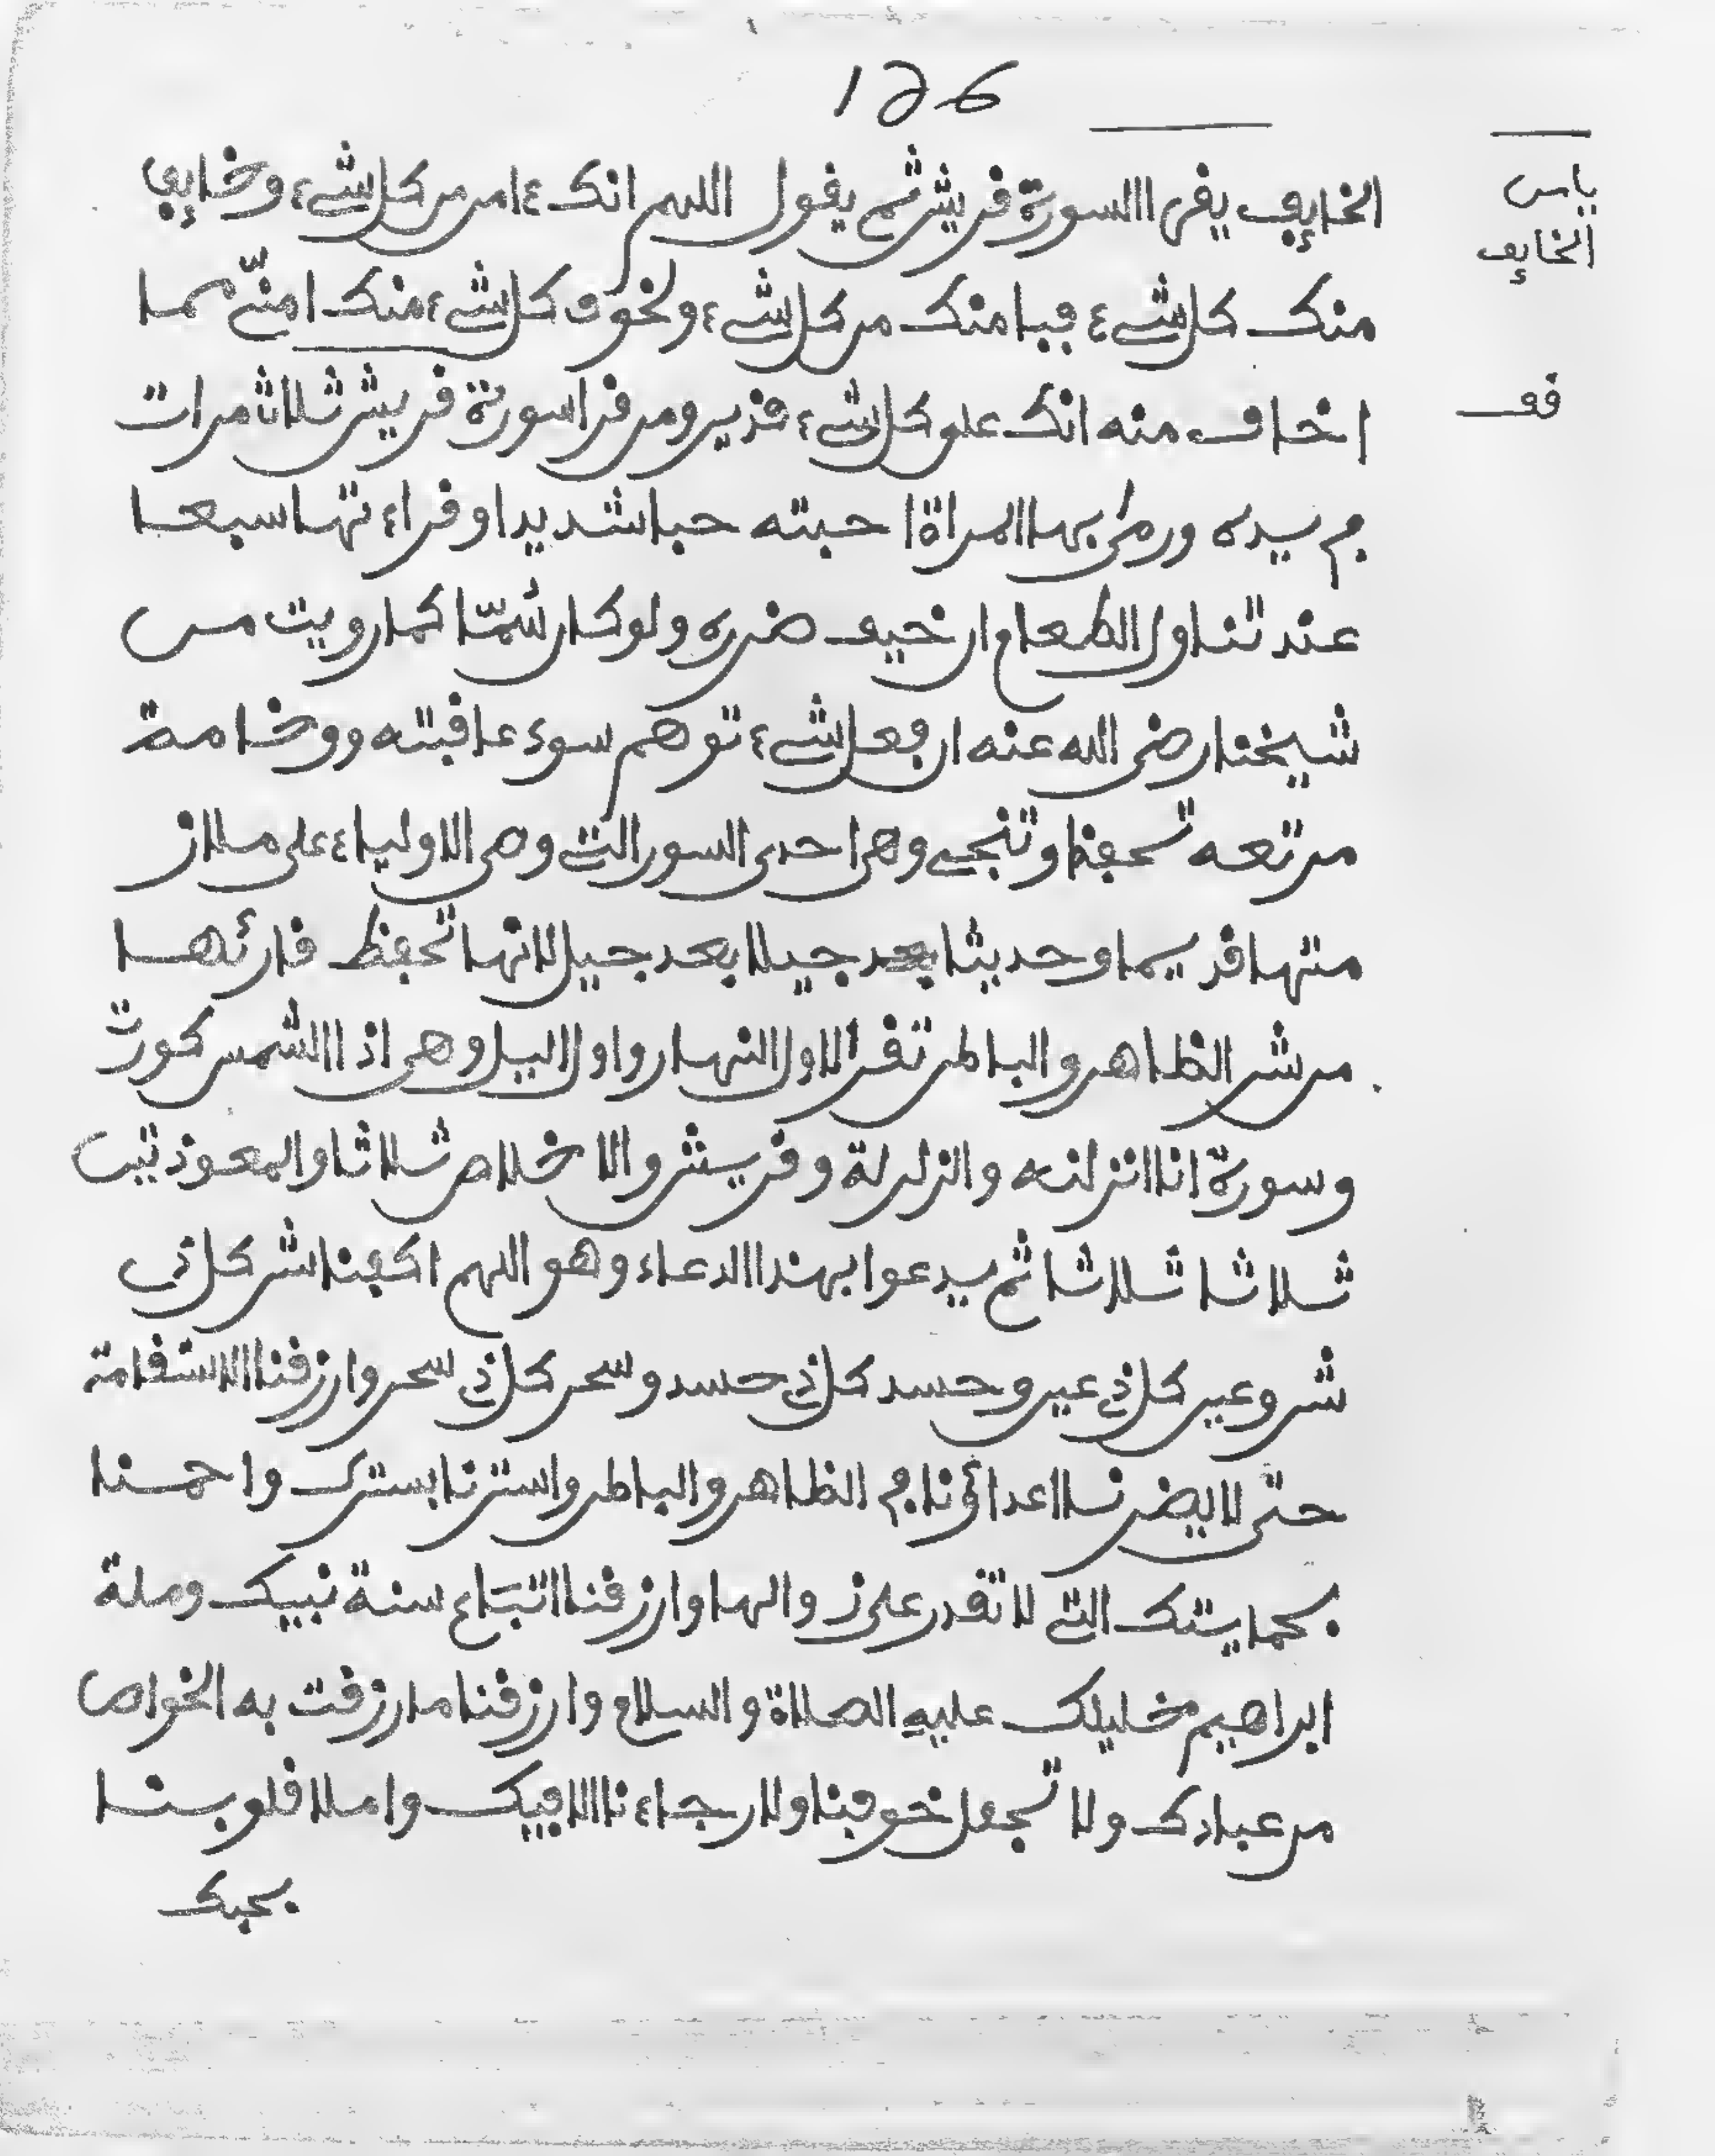 126
الخايف يقرا السورة قريش ثم يقول اللهم انك ءامن من كل شےء وخايف
يامن
الخايف
منك كل شےء فبامنك من كل شےء ولخوف كل شےء منك امنّے مما
اخاف منه انك على كل شےء قدير ومن قرا سورة قريش ثلاث مرات
قف
في يده ورمى بها المراة احبته حبا شديدا وقراءتها سبعا
عند تناول الطعام ان خيف ضرره ولو كان سُمّا كما رويت من
شيخنا رضى الله عنه ان فعل شےء توهم سوء عاقبته ووخامة
مرتعه تحفظ وتنجے وهى احدى السور التے وصى الاولياء على ملاز
متها قديما وحديثا بعد جيلا بعد جيل لانها تحفظ قارئها
من شر الظاهر والباطن تقرأ لاول النهار واول اليل وهى اذا الشمس كورت
وسورة انا انزلنه والزلزلة وقريش والاخلاص ثلاثا والمعوذتين
ثلاثا ثلاثا ثم يدعوا بهذا الدعاء وهو اللهم اكفنا شر كل ذى
شر وعين كل ذے عين وحسد كل ذے حسد وسحر كل ذے سحر وارزقنا الاستقامة
حتى لا يضرنا اعدائنا في الظاهر والباطن واسترنا بسترك واحمنا
بحمايتك التے لا تقدر على زوالها وارزقنا اتبَاع سنة نبيك وملة
ابراهيم خليلك عليه الصلاة والسلام وارزقنا ما رزقت به الخواص
من عبادك ولا تجعل خوفنا ولا رجاءنا الا فيك واملا قلوبنا
بحبك